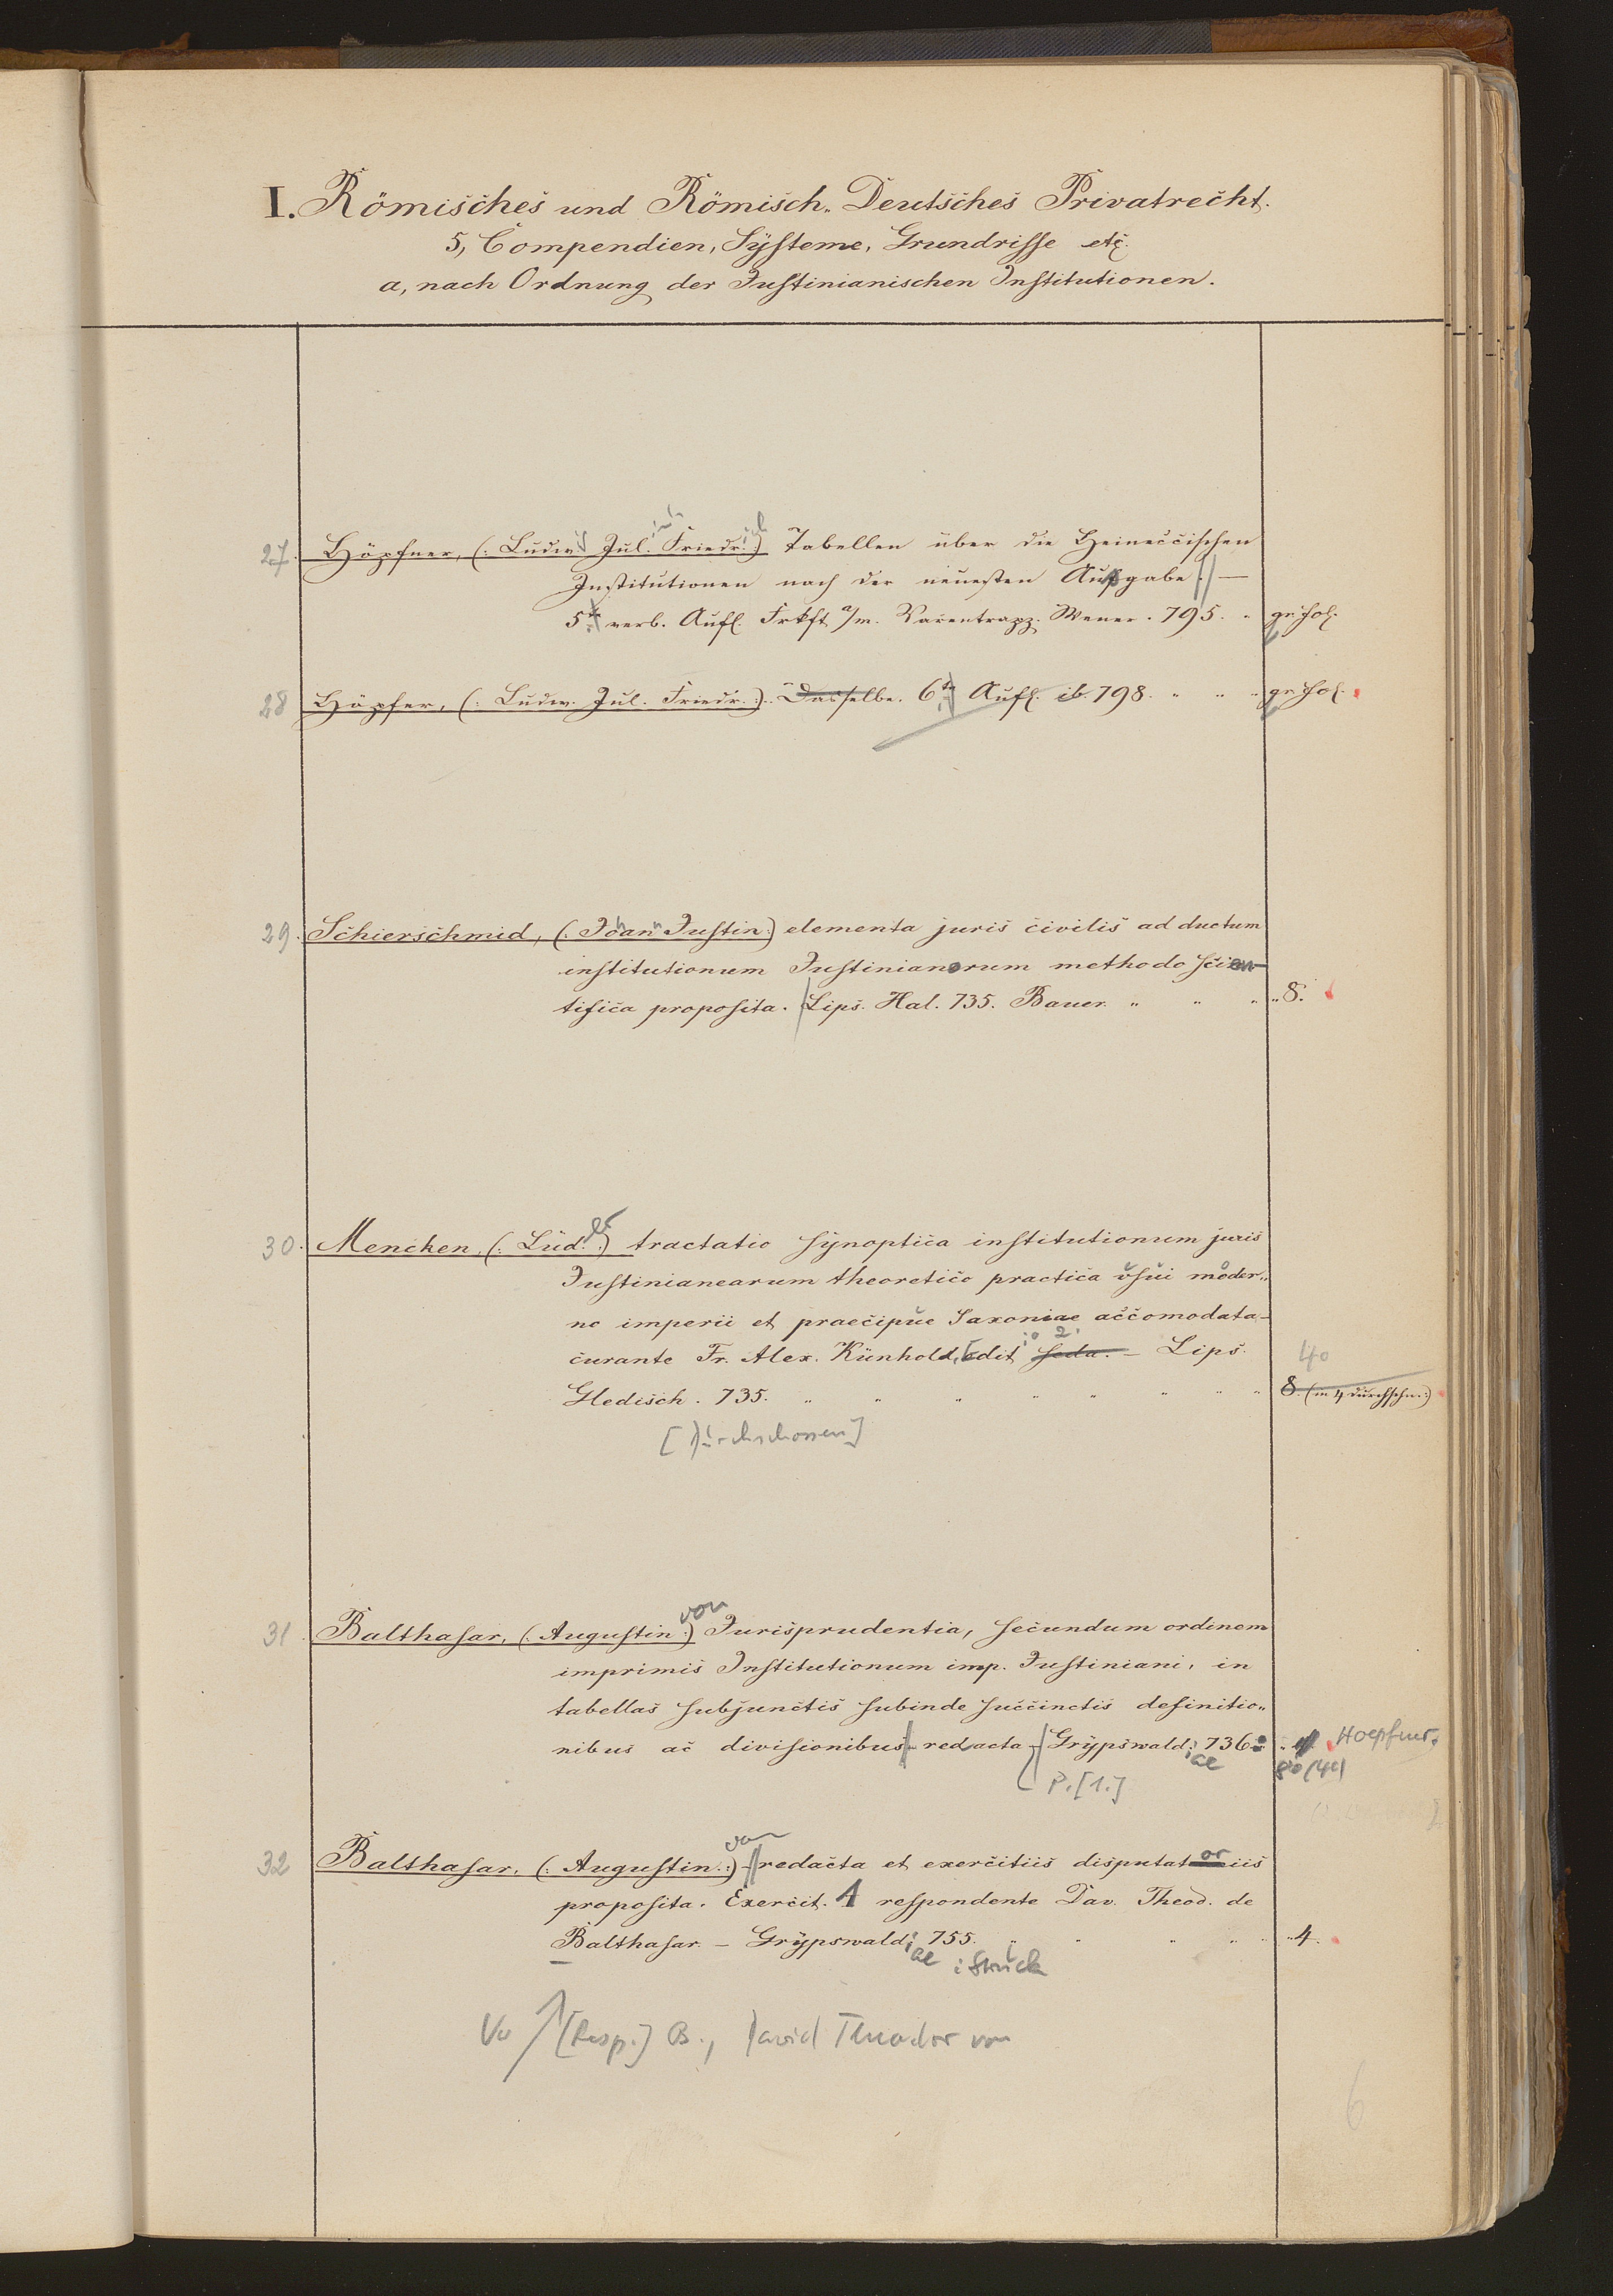 I. Römisches und Römisch-Deutsches Privatrecht.
5, Compendien, Systeme, Grundrisse etc.
a, nach Ordnung der Justinianischen Institutionen.
27. Höpfner, (: Ludw. Jul. Friedr. :) Tabellen über die Heineccischen
Institutionen nach der neuesten Ausgabe. —
5te verb. Aufl. Frkft a/m. Varentrapp. Wener. 795. " gr. fol.
28 Höpfer, (: Ludw. Jul. Friedr. :). Dasselbe. 6te Aufl. ib. 798. " " " gr. fol.
29. Schierschmid, (: Johann Justin :) elementa juris civilis ad ductum
institutionum Justinianorum methodo scien-
tifica proposita. Lips. Hal. 735. Bauer. " " " 8.
30. Mencken, (: Lud. :) tractatio synoptica institutionum juris
Justinianearum theoretico practica usui moder-
no imperii et praecipue Saxoniae accomodata-
curante Fr. Alex. Künhold, edit io 2. secda. — Lips.
40
Gledisch. 735. " " " " " " " " 8. (in 4 durchschn.:)
[Durchschossen]
31 Balthasar, (: Augustin :) von Jurisprudentia, secundum ordinem
imprimis Institutionum imp. Justiniani, in
tabellas subjunctis subinde succinctis definitio-
nibus ac divisionibus - redacta - Grypswald: iae 736. " 4. Hoepfner.
P. [1.] 80 (40)
32 Balthasar, (: Augustin. :) von - redacta et exercitiis disputatoriis
proposita. Exercit. 1 respondente Dav. Theod. de
Balthasar. — Grypswald: iae 755. " " " " " 4.
1 Stück
Vw [Resp.] B., David Theodor von
6